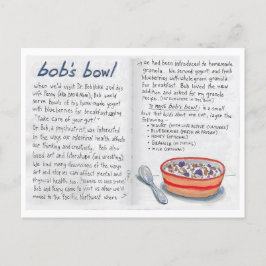 bob's bowl
When we'd visit Dr. Bob
with Penny (aka David Bird), Bob would
serve bowls of his home-made yogurt
with blueberries for breakfast saying
"Take care of your gut!"
Dr. Bob, a psychiatrist, was interested
in the ways our intestinal health affects
our thinking and creativity. Bob also
loved art and literature (and wrestling).
We had many discussions of the ways
art and stories can affect mental and
physical health too.
Bob and Penny came to visit us after we'd
moved to the Pacific Northwest where
we had been introduced to homemade
granola. We served yogurt and fresh
blueberries with whole grain granola
for breakfast. Bob loved the new
addition and asked for my granola
recipe.
To make Bob's Bowl: in a small
bowl that holds about one cup, layer the
following:
• YOGURT
• BLUEBERRIES (FRESH OR FROZEN)
• HONEY (OPTIONAL)
• GRANOLA
• MILK (OPTIONAL)